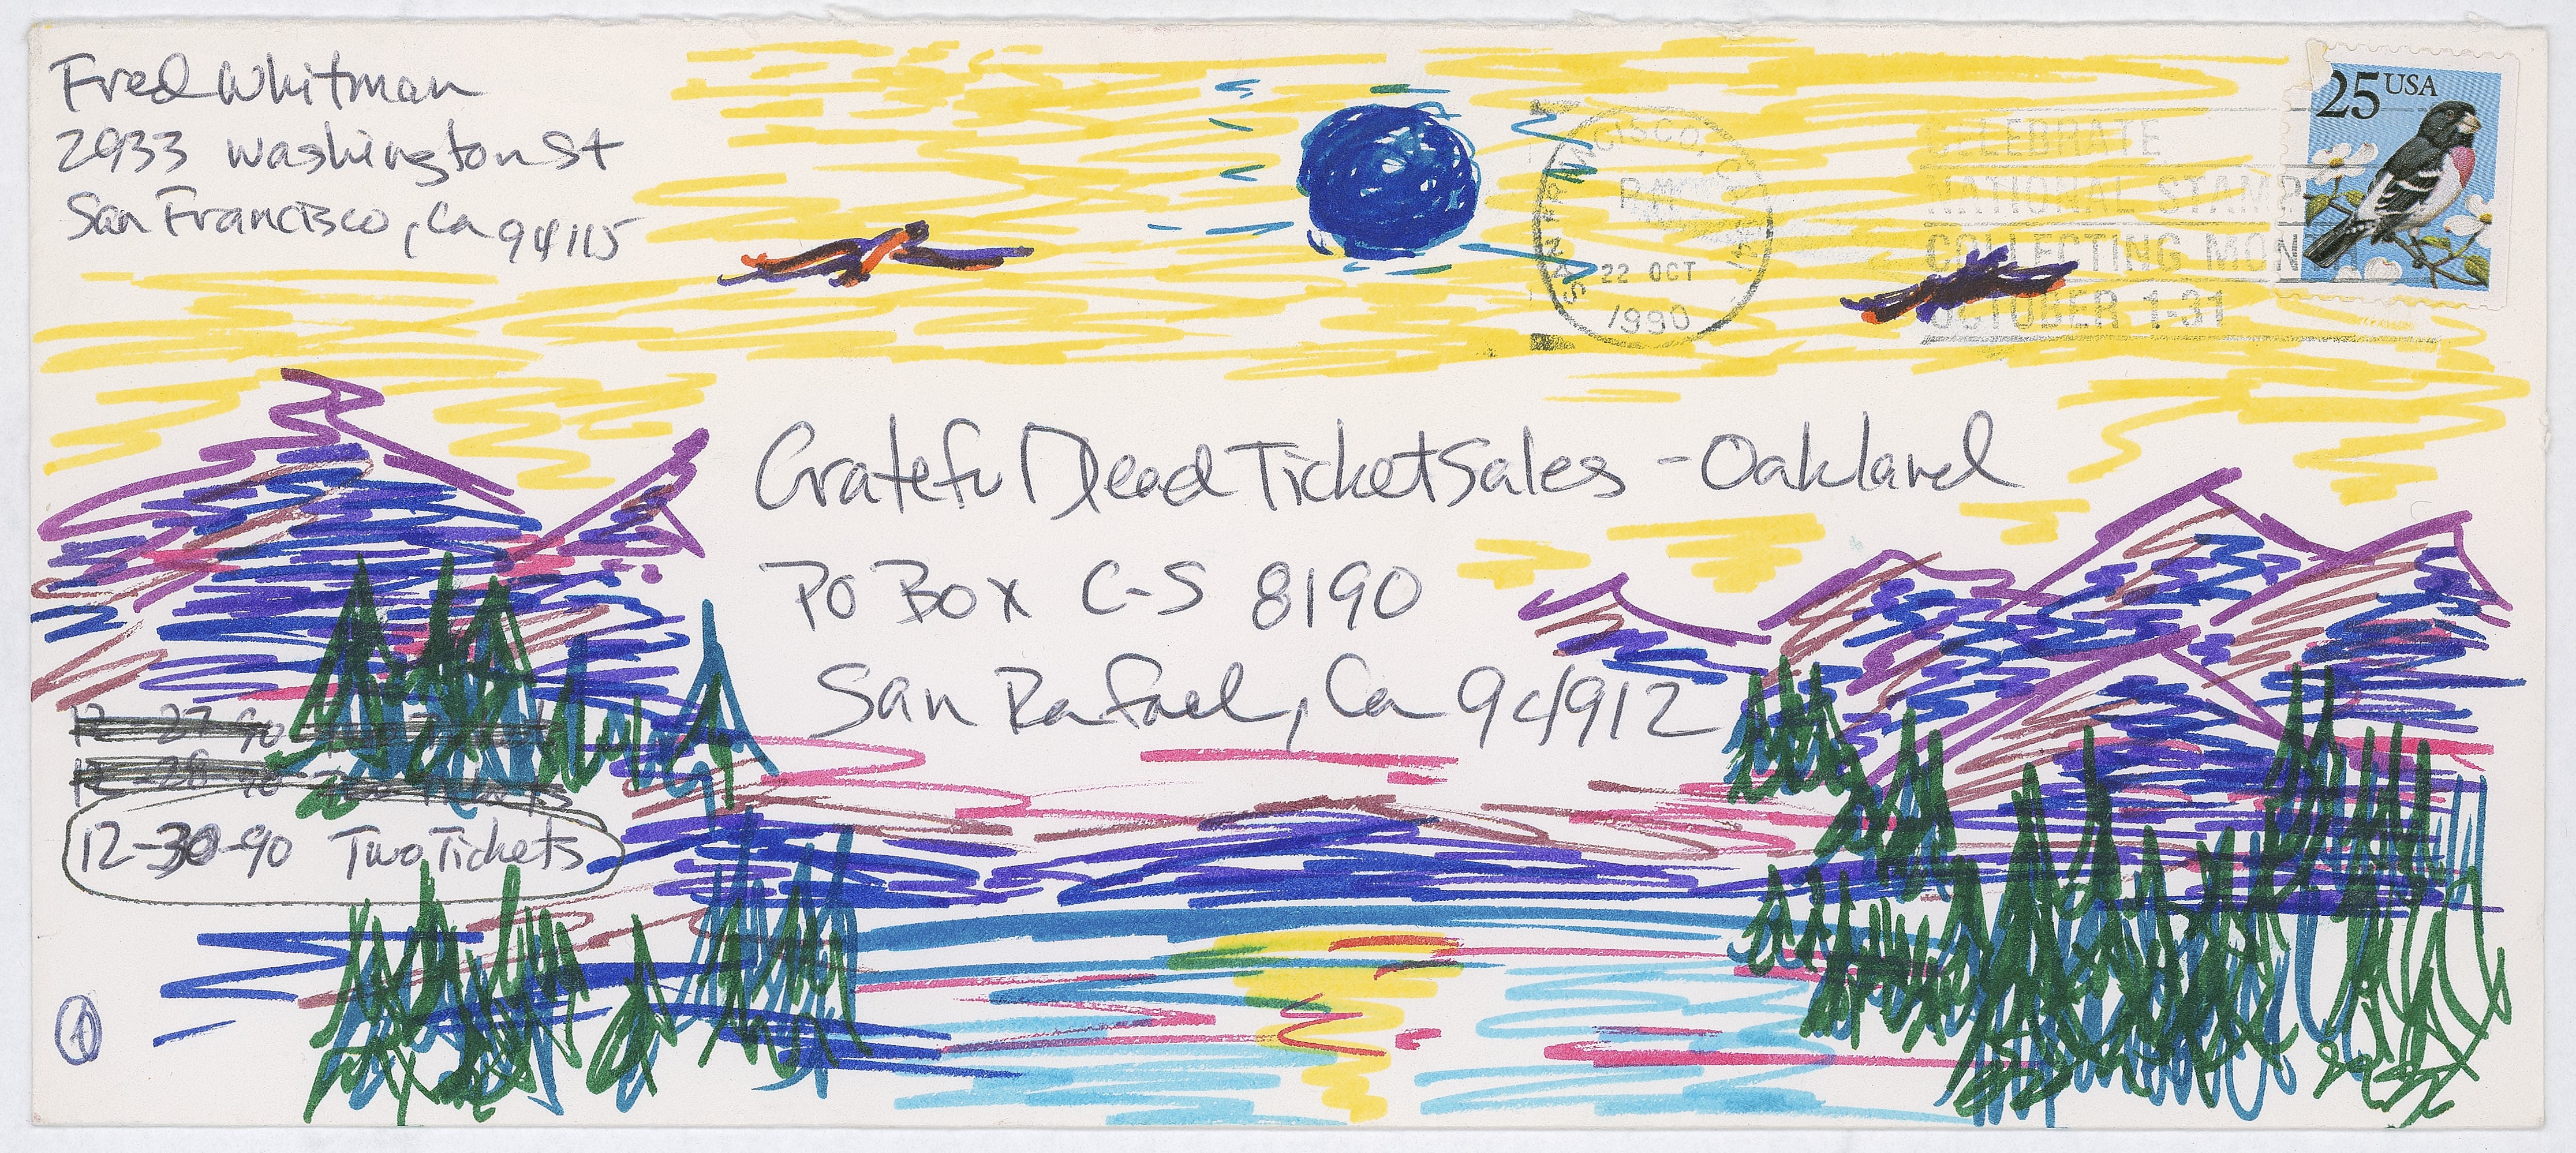 Fred Whitman
2933 Washington St
San Francisco, Ca 94115
25 USA
SAN FRANCISCO, CA 941
PM
22 OCT
1990
CELEBRATE
NATIONAL STAMP
COLLECTING MONTH
OCTOBER 1-31
Grateful Dead Ticket Sales - Oakland
PO Box C-S 8190
San Rafael, Ca 94912
12-27-90 Two Tickets
12-28-90 Two Tickets
12-30-90 Two Tickets
1